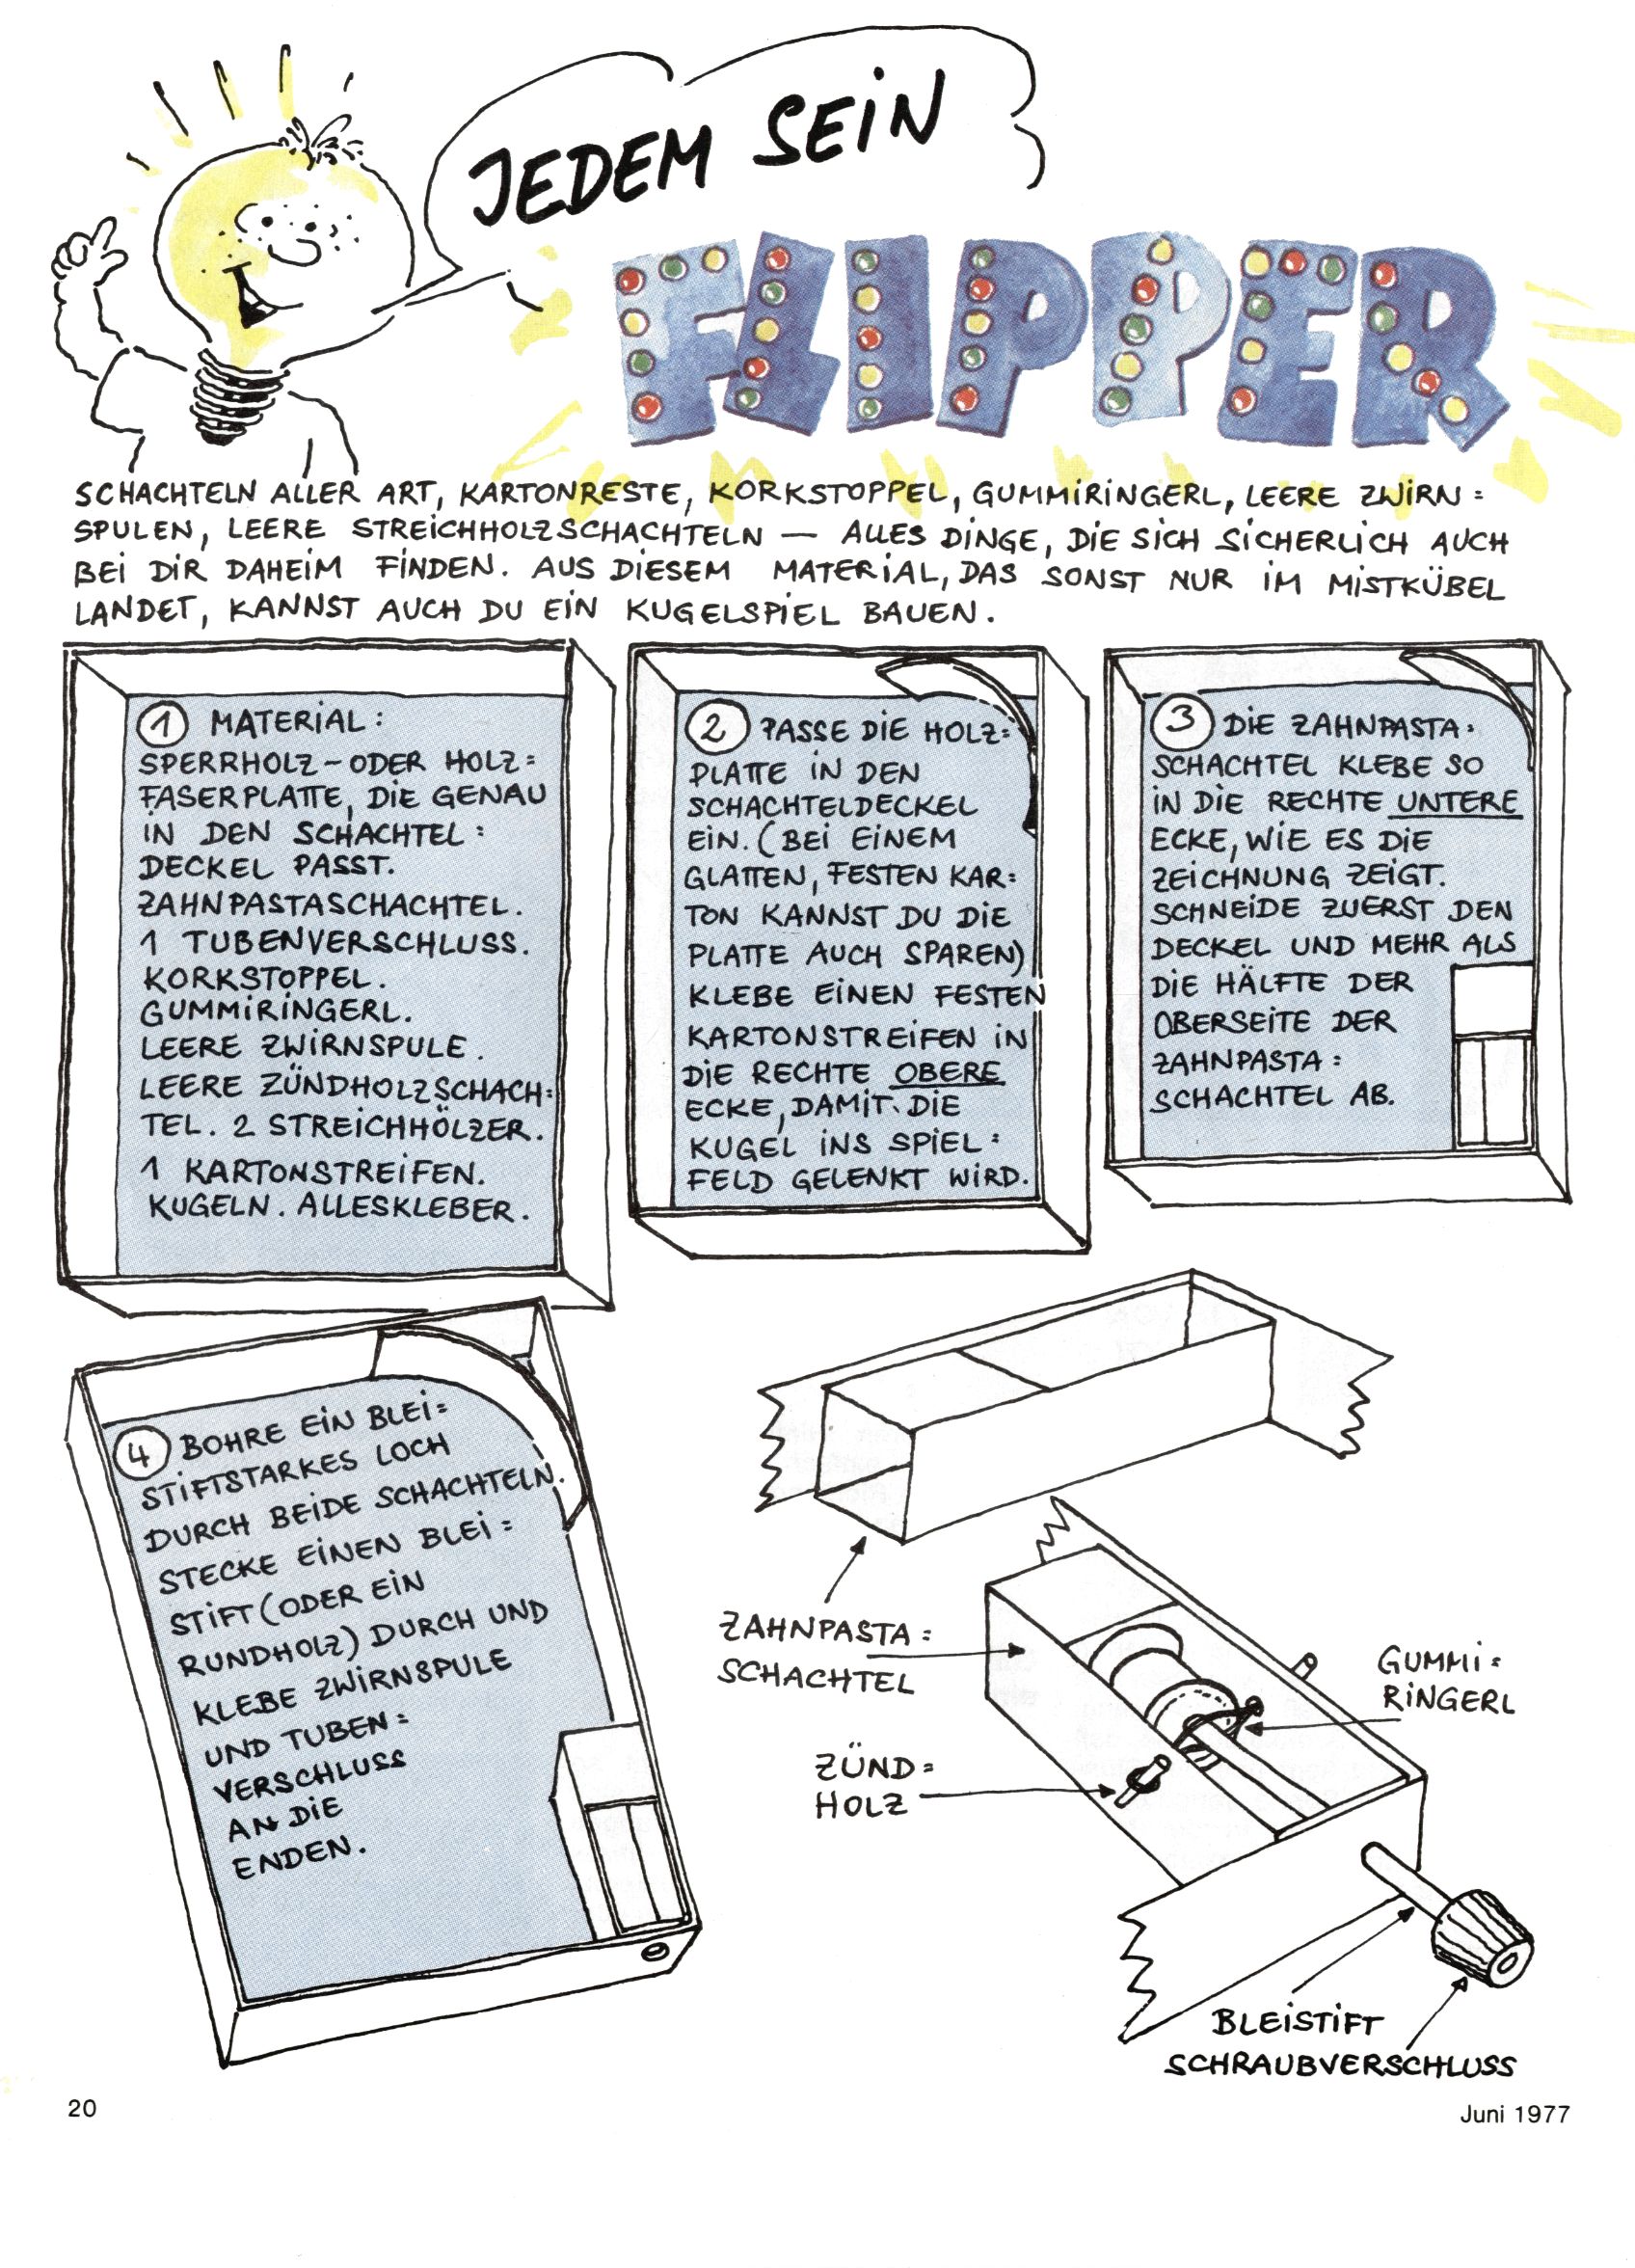 JEDEM SEIN
FLIPPER
SCHACHTELN ALLER ART, KARTONRESTE, KORKSTOPPEL, GUMMIRINGERL, LEERE ZWIRN=
SPULEN, LEERE STREICHHOLZSCHACHTELN — ALLES DINGE, DIE SICH SICHERLICH AUCH
BEI DIR DAHEIM FINDEN. AUS DIESEM MATERIAL, DAS SONST NUR IM MISTKÜBEL
LANDET, KANNST AUCH DU EIN KUGELSPIEL BAUEN.
1 MATERIAL:
SPERRHOLZ- ODER HOLZ=
FASERPLATTE, DIE GENAU
IN DEN SCHACHTEL=
DECKEL PASST.
ZAHNPASTASCHACHTEL.
1 TUBENVERSCHLUSS.
KORKSTOPPEL.
GUMMIRINGERL.
LEERE ZWIRNSPULE.
LEERE ZÜNDHOLZSCHACH=
TEL. 2 STREICHHÖLZER.
1 KARTONSTREIFEN.
KUGELN. ALLESKLEBER.
2 PASSE DIE HOLZ=
PLATTE IN DEN
SCHACHTELDECKEL
EIN. (BEI EINEM
GLATTEN, FESTEN KAR=
TON KANNST DU DIE
PLATTE AUCH SPAREN)
KLEBE EINEN FESTEN
KARTONSTREIFEN IN
DIE RECHTE OBERE
ECKE, DAMIT DIE
KUGEL INS SPIEL=
FELD GELENKT WIRD.
3 DIE ZAHNPASTA=
SCHACHTEL KLEBE SO
IN DIE RECHTE UNTERE
ECKE, WIE ES DIE
ZEICHNUNG ZEIGT.
SCHNEIDE ZUERST DEN
DECKEL UND MEHR ALS
DIE HÄLFTE DER
OBERSEITE DER
ZAHNPASTA=
SCHACHTEL AB.
4 BOHRE EIN BLEI=
STIFTSTARKES LOCH
DURCH BEIDE SCHACHTELN.
STECKE EINEN BLEI=
STIFT (ODER EIN
RUNDHOLZ) DURCH UND
KLEBE ZWIRNSPULE
UND TUBEN=
VERSCHLUSS
AN DIE
ENDEN.
ZAHNPASTA=
SCHACHTEL
GUMMI=
RINGERL
ZÜND=
HOLZ
BLEISTIFT
SCHRAUBVERSCHLUSS
20
Juni 1977